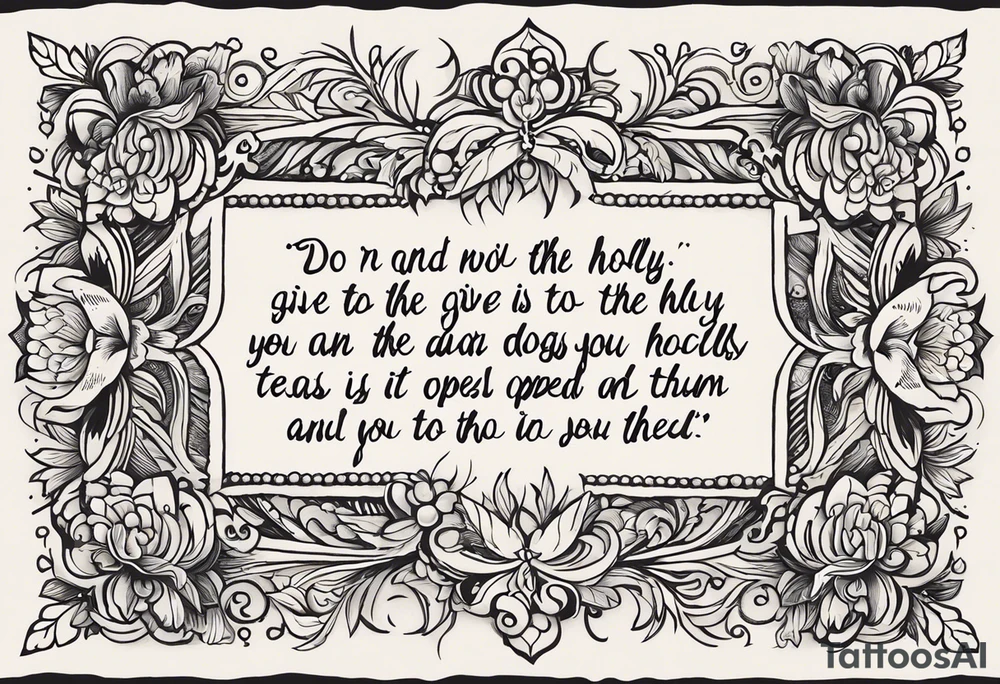 "Do n and the holly."
give to the give is to the hluy
you an the dogs you
teas is it opesl opped an thum
and you to tho io you thect."
TattoosAI